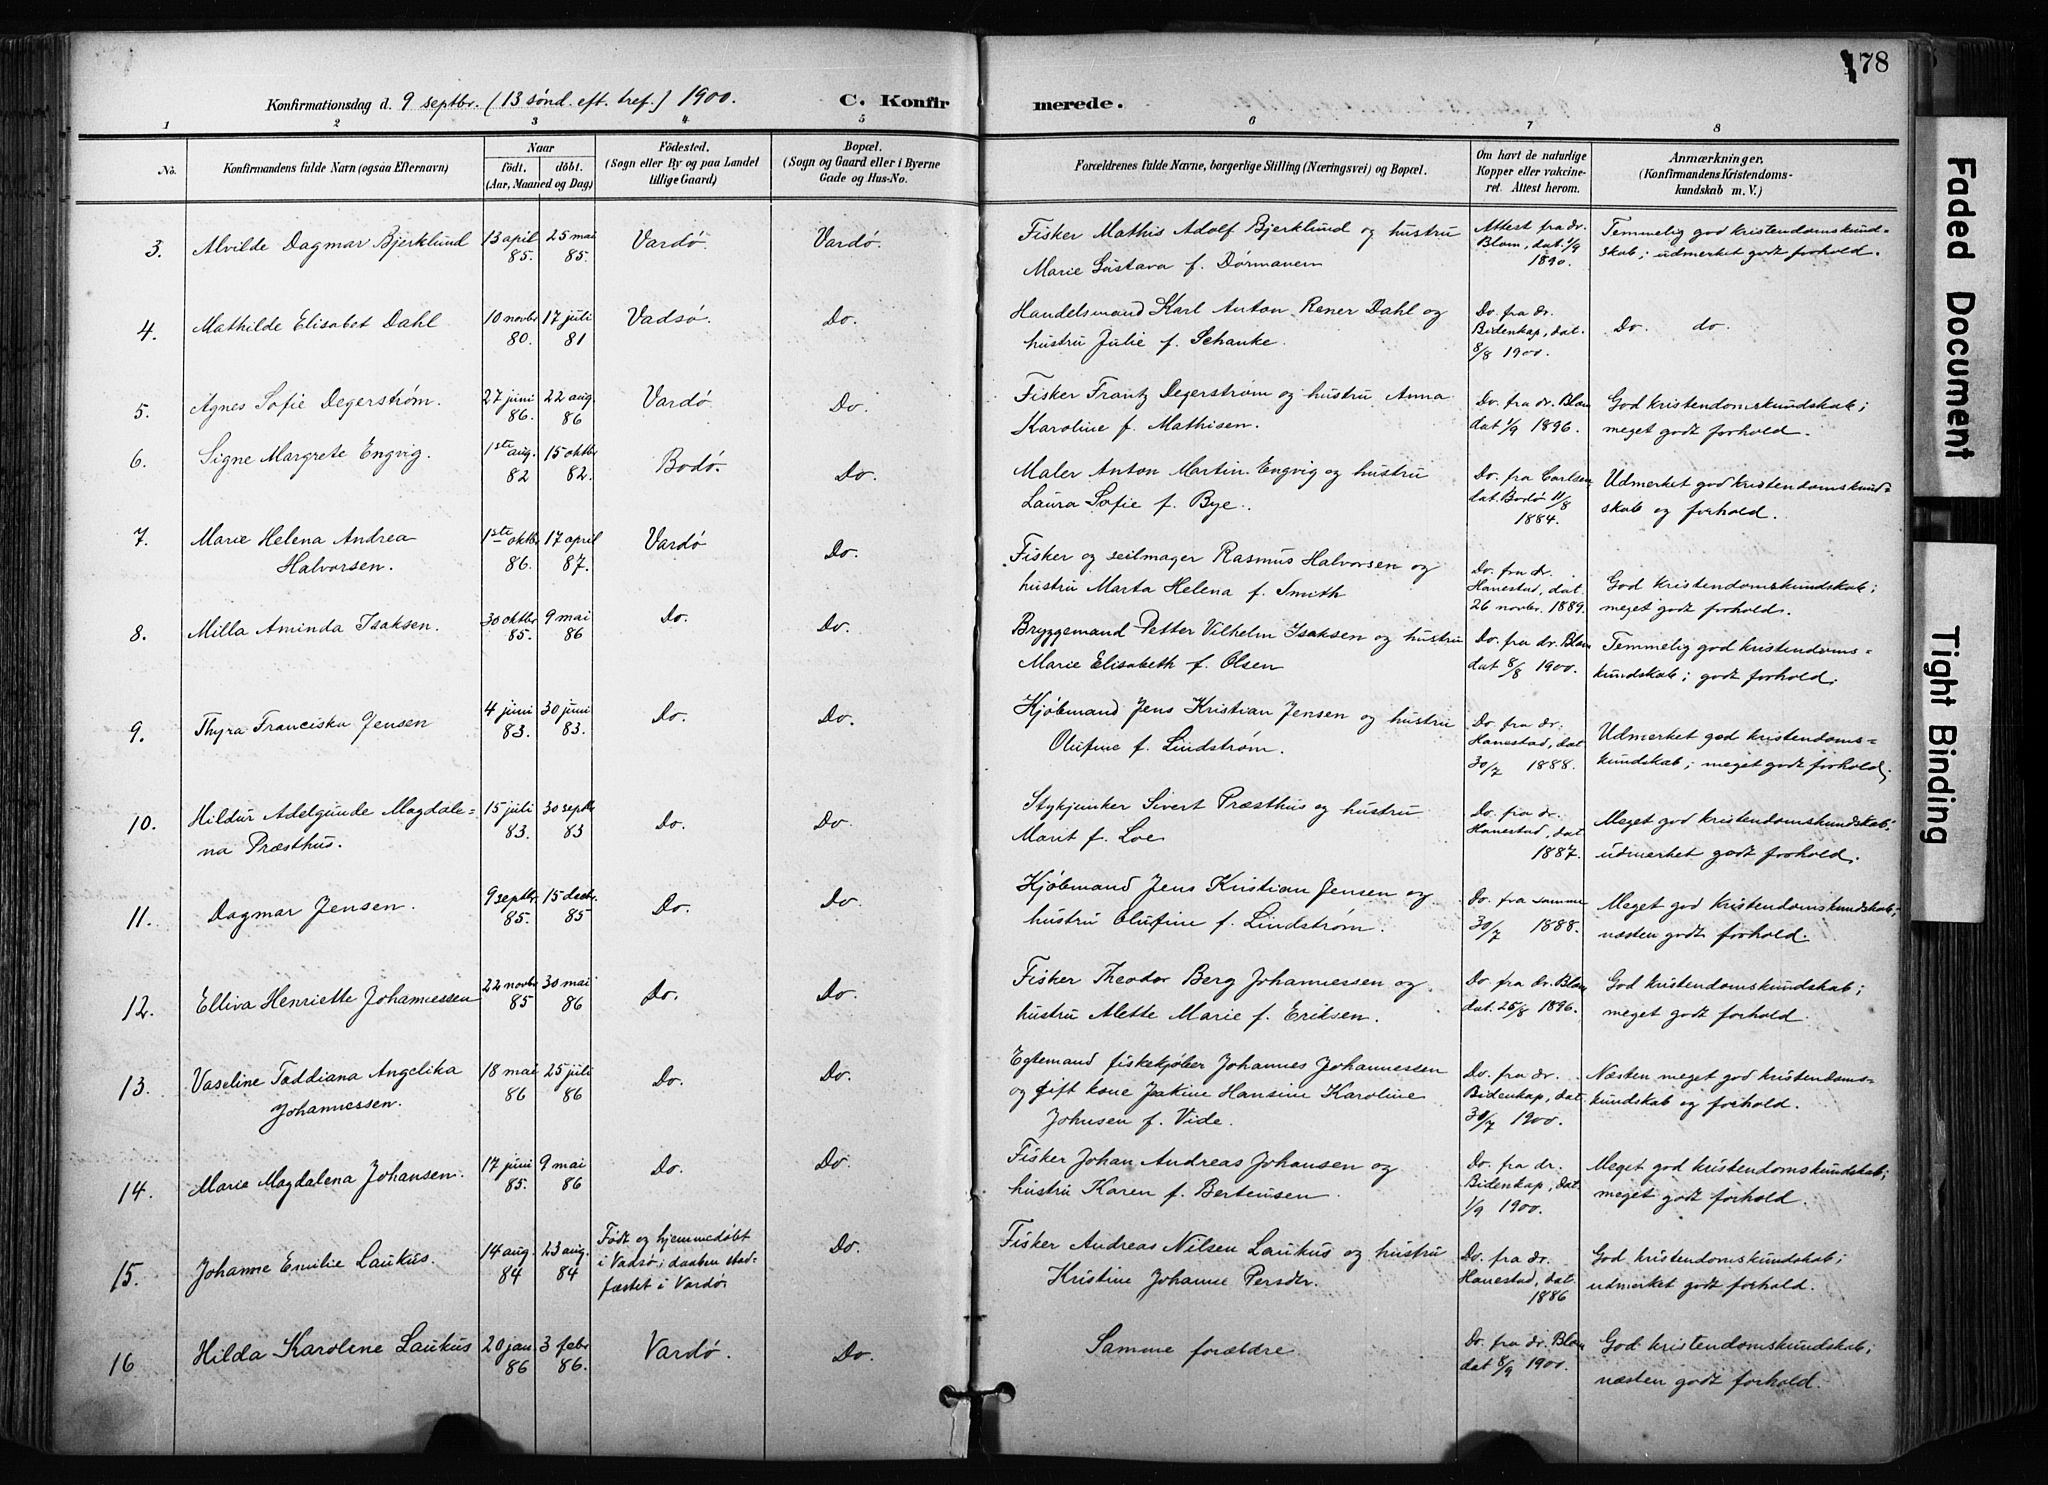 178
Konfirmationsdag d. 9 septbr. (13 sønd. eft. tref.) 1900. C. Konfirmerede.
1 2 3 4 5 6 7 8
No. Konfirmandens fulde Navn (ogsaa Efternavn) Naar født. døbt. (Aar, Maaned og Dag) Födested. (Sogn eller By og paa Landet tillige Gaard) Bopæl. (Sogn og Gaard eller i Byerne Gade og Hus-No. Forældrenes fulde Navne, borgerlige Stilling (Næringsvei) og Bopæl. Om havt de naturlige Kopper eller vakcineret. Attest herom. Anmærkninger. (Konfirmandens Kristendomskundskab m. V.)
3. Alvilde Dagmar Bjerklund 13 april 85. 25 mai 85. Vardø. Vardø. Fisker Mathis Adolf Bjerklund og hustru Marie Gustava f. Dørmanen Attest fra dr. Blom, dat. 1/9 1890. Temmelig god kristendomskundskab; udmerket godt forhold.
4. Mathilde Elisabet Dahl 10 novbr 80. 17 juli 81 Vadsø. Do. Handelsmand Karl Anton Rener Dahl og hustru Julie f. Schanke. Do. fra dr. Bidenkap, dat. 8/8 1900. Do. do.
5. Agnes Sofie Degerstrøm. 27 juni 86. 22 aug. 86 Vardø Do. Fisker Frantz Degerstrøm og hustru Anna Karoline f. Mathisen. Do. fra dr. Blom dat 1/9 1896. God kristendomskundskab; meget godt forhold.
6. Signe Margrete Engvig. 1ste aug. 82 15 oktbr 82. Bodø. Do. Maler Anton Martin Engvig og hustru Laura Sofie f. Bye. Do. fra Carlsen, dat. Bodø 11/8 1884. Udmerket god kristendomskundskab og forhold.
7. Marie Helena Andrea Halvorsen. 1ste oktbr 86. 17 april 87. Vardø Do. Fisker og seilmager Rasmus Halvorsen og hustru Marta Helena f. Smith Do. fra dr. Hanestad, dat. 26 novbr. 1889. God kristendomskundskab; meget godt forhold.
8. Milla Aminda Isaksen. 30 oktbr 85. 9 mai 86 Do. Do. Bryggemand Petter Vilhelm Isaksen og hustru Marie Elisabeth f. Olsen Do. fra dr. Blom dat 8/8 1900. Temmelig god kristendomskundskab; godt forhold.
9. Thyra Franciska Jensen 4 juni 83. 30 juni 83. Do. Do. Kjøbmand Jens Kristian Jensen og hustru Olufine f. Lindstrøm. Do. fra dr. Hanestad, dat 30/7 1888. Udmerket god kristendomskundskab; meget godt forhold.
10. Hildur Adelgunde Magdalena Præsthus. 15 juli 83. 30 septbr 83 Do. Do. Stykjunker Sivert Præsthus og hustru Marit f. Loe Do. fra dr. Hanestad, dat 1887. Meget god kristendomskundskab; udmerket godt forhold.
11. Dagmar Jensen. 9 septbr. 85. 15 decbr. 85 Do. Do. Kjøbmand Jens Kristian Jensen og hustru Olufine f. Lindstrøm. Do. fra samme 30/7 1888. Meget god kristendomskundskab; næsten godt forhold.
12. Elliva Henriette Johannessen 22 novbr 85 30 mai 86 Do. Do. Fisker Theodor Berg Johannessen og hustru Alette Marie f. Eriksen. Do. fra dr. Blom dat. 25/8 1896. God kristendomskundskab; meget godt forhold.
13. Vaseline Taddiana Angelika Johannessen. 18 mai 86 25 juli 86 Do. Do. Egtemand fiskekjøber Johannes Johannessen og gift kone Joakine Hansine Karoline Johnsen f. Vide. Do. fra dr. Bidenkap, dat. 30/7 1900. Næsten meget god kristendomskundskab og forhold.
14. Marie Magdalena Johansen. 17 juni 85. 9 mai 86 Do. Do. Fisker Johan Andreas Johansen og hustru Karen f. Bertensen. Do. fra dr. Bidenkap, dat. 1/9 1900. Meget god kristendomskundskab; meget godt forhold.
15. Johanne Emilie Laukus. 14 aug. 84 23 aug. 84 Født og hjemmedøbt i Vadsø; daaben stadfæstet i Vardø. Do. Fisker Andreas Nilsen Laukus og hustru Kristine Johanne Persdtr. Do. fra dr. Hanestad, dat. 1886 God kristendomskundskab; udmerket godt forhold.
16 Hilda Karoline Laukus 20 jan. 86 3 febr 86. Vardø. Do. Samme forældre. Do. fra dr. Blom dat 8/9 1900. God kristendomskundskab; næsten godt forhold.
Faded Document
Tight Binding